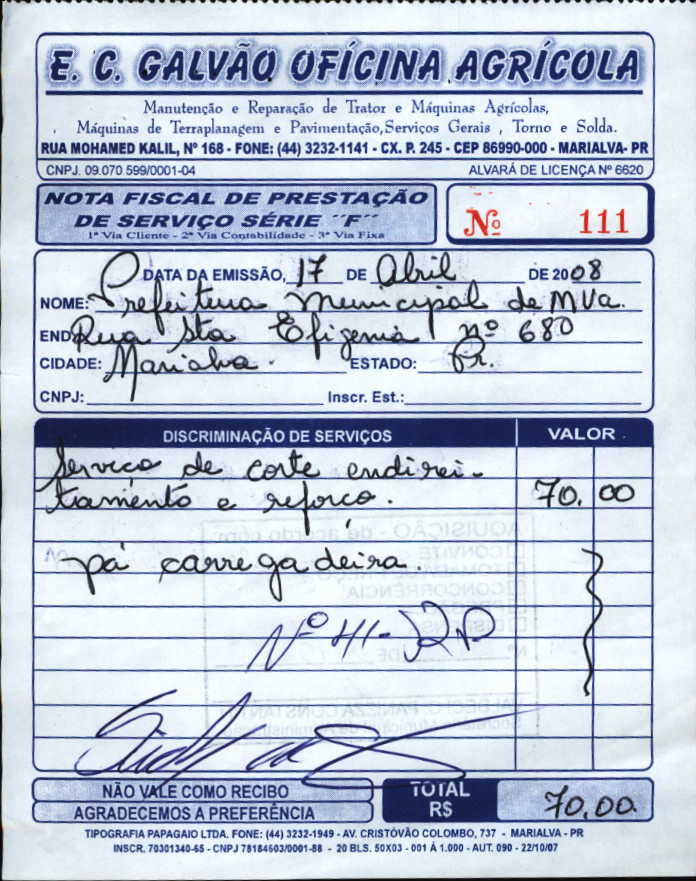 E. C. GALVÃO OFÍCINA AGRÍCOLA
Manutenção e Reparação de Trator e Máquinas Agrícolas,
Máquinas de Terraplanagem e Pavimentação, Serviços Gerais , Torno e Solda.
RUA MOHAMED KALIL, Nº 168 - FONE: (44) 3232-1141 - CX. P. 245 - CEP 86990-000 - MARIALVA- PR
CNPJ. 09.070 599/0001-04 ALVARÁ DE LICENÇA Nº 6620
NOTA FISCAL DE PRESTAÇÃO
DE SERVIÇO SÉRIE ´´F´´
1ª Via Cliente - 2ª Via Contabilidade - 3ª Via Fixa
Nº 111
DATA DA EMISSÃO, 17 DE Abril DE 2008
NOME: Prefeitura Municipal de MVa.
END Rua Sta Efigenia nº 680
CIDADE: Marialva. ESTADO: Pr.
CNPJ: Inscr. Est.:
DISCRIMINAÇÃO DE SERVIÇOS VALOR
Serviço de corte endirei-
tamento e reforço. 70,00
pá carregadeira.
Nº 41-
AQUISIÇÃO - de acordo com
CONVITE
CONCORRÊNCIA
NÃO VALE COMO RECIBO
AGRADECEMOS A PREFERÊNCIA
TOTAL
R$ 70,00.
TIPOGRAFIA PAPAGAIO LTDA. FONE: (44) 3232-1949 - AV. CRISTÓVÃO COLOMBO, 737 - MARIALVA - PR
INSCR. 70301340-65 - CNPJ 78184603/0001-88 - 20 BLS. 50X03 - 001 Á 1.000 - AUT. 090 - 22/10/07